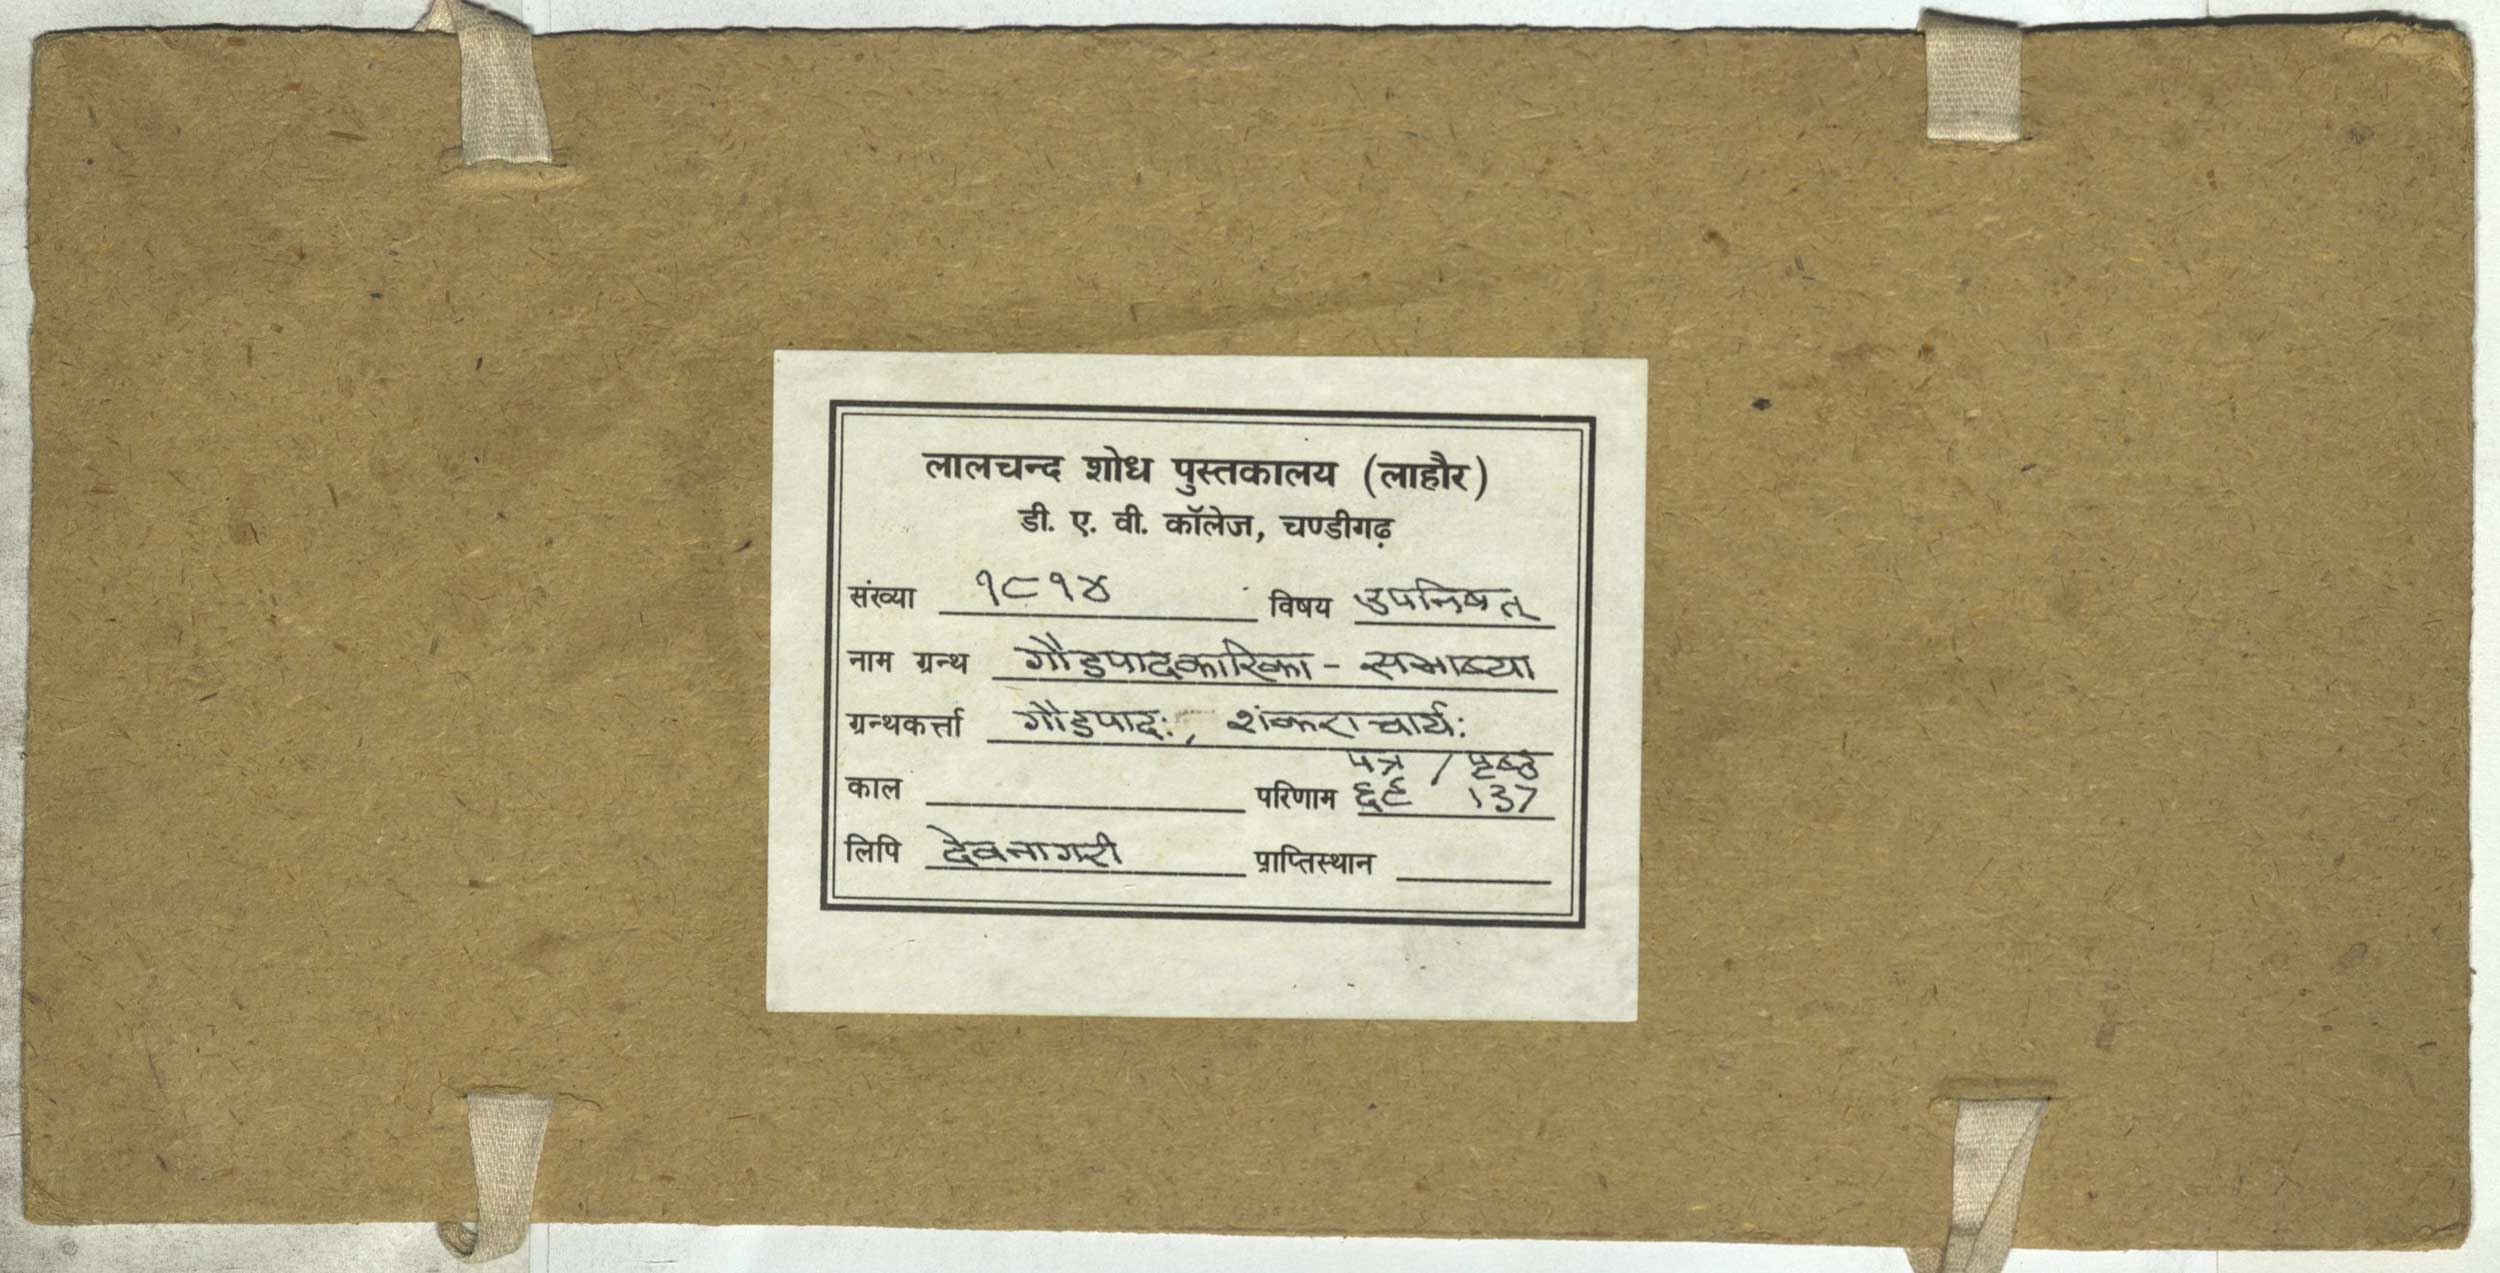 लालचन्द शोध पुस्तकालय (लाहौर)
डी. ए. वी. कॉलेज, चण्डीगढ़
संख्या १८१४ विषय उपनिषत्
नाम ग्रन्थ गौडपादकारिका - सभाष्या
ग्रन्थकर्त्ता गौडपादः, शंकराचार्यः
पत्र / पृष्ठ
काल परिणाम ६९ 137
लिपि देवनागरी प्राप्तिस्थान